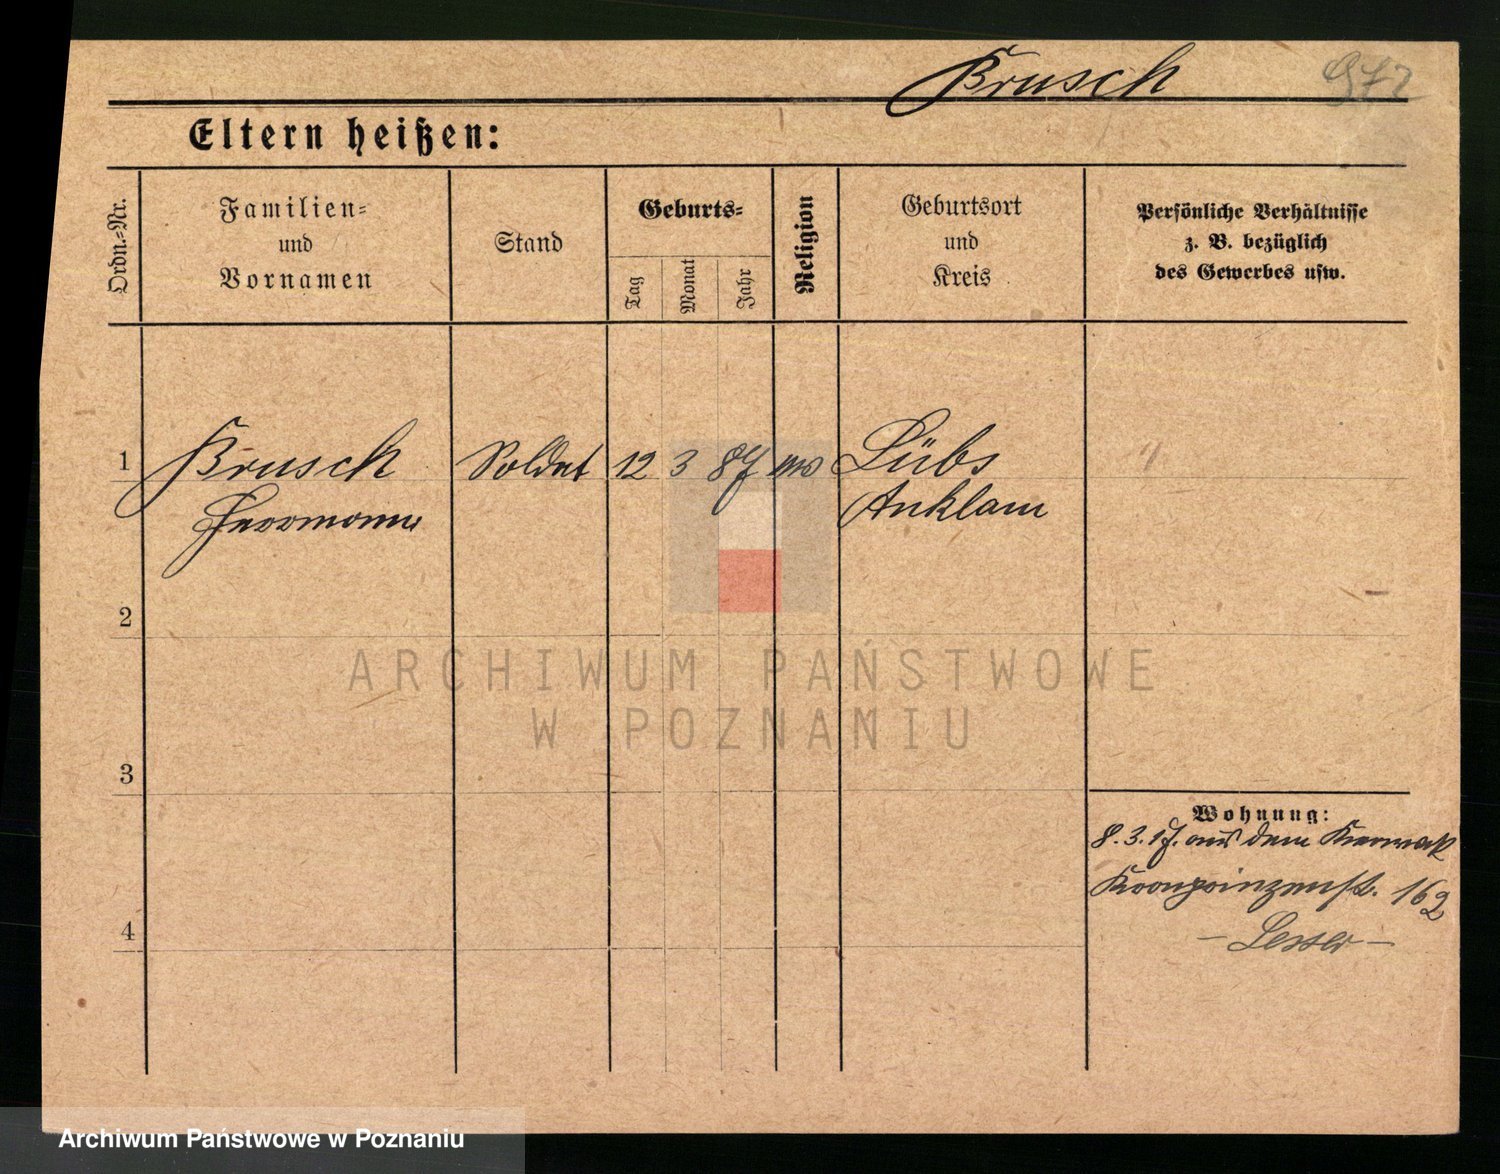 Brusch 972
Eltern heißen:
Ordn.-Nr.
Familien-
und
Vornamen
Stand
Geburts-
Tag
Monat
Jahr
Religion
Geburtsort
und
Kreis
Persönliche Verhältnisse
z. B. bezüglich
des Gewerbes usw.
1 Brusch Soldat 12 3 87 Lübs
Herrmann Anklam
2
3
4
Wohnung:
8.3.17. aus dem
Kronprinzenst. 162
— Lesser —
ARCHIWUM PAŃSTWOWE
W POZNANIU
Archiwum Państwowe w Poznaniu